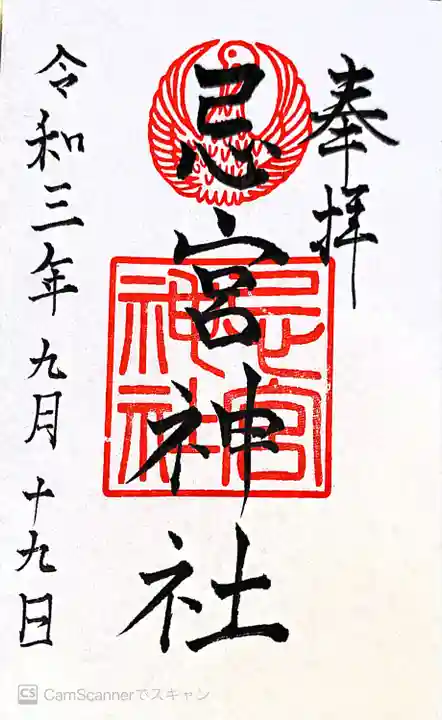 奉拝
忌宮神社
忌宮
神社
令和三年九月十九日
CS CamScannerでスキャン